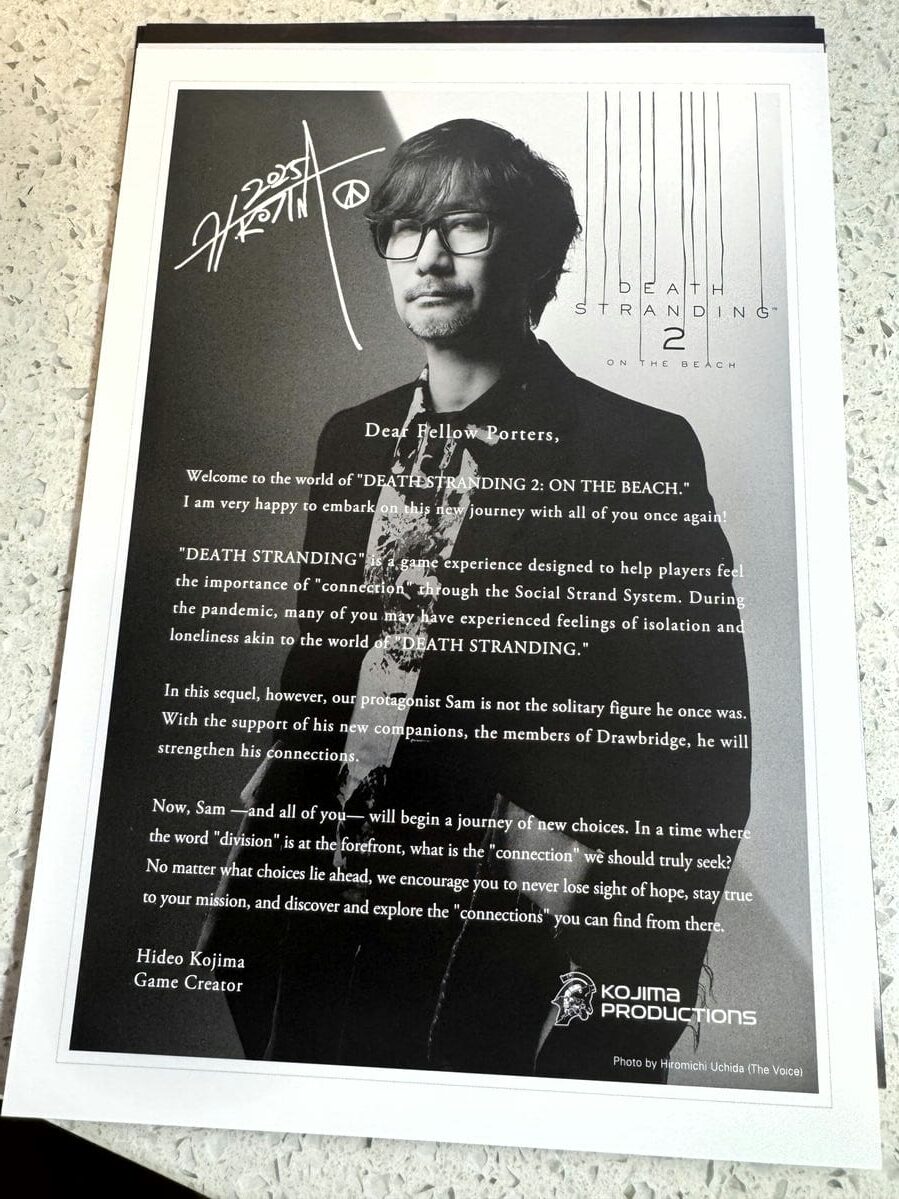 2025
H.KOJIMA
DEATH
STRANDING™
2
ON THE BEACH
Dear Fellow Porters,
Welcome to the world of "DEATH STRANDING 2: ON THE BEACH."
I am very happy to embark on this new journey with all of you once again!
"DEATH STRANDING" is a game experience designed to help players feel
the importance of "connection" through the Social Strand System. During
the pandemic, many of you may have experienced feelings of isolation and
loneliness akin to the world of "DEATH STRANDING."
In this sequel, however, our protagonist Sam is not the solitary figure he once was.
With the support of his new companions, the members of Drawbridge, he will
strengthen his connections.
Now, Sam —and all of you— will begin a journey of new choices. In a time where
the word "division" is at the forefront, what is the "connection" we should truly seek?
No matter what choices lie ahead, we encourage you to never lose sight of hope, stay true
to your mission, and discover and explore the "connections" you can find from there.
Hideo Kojima
Game Creator
KOJIMA
PRODUCTIONS
Photo by Hiromichi Uchida (The Voice)